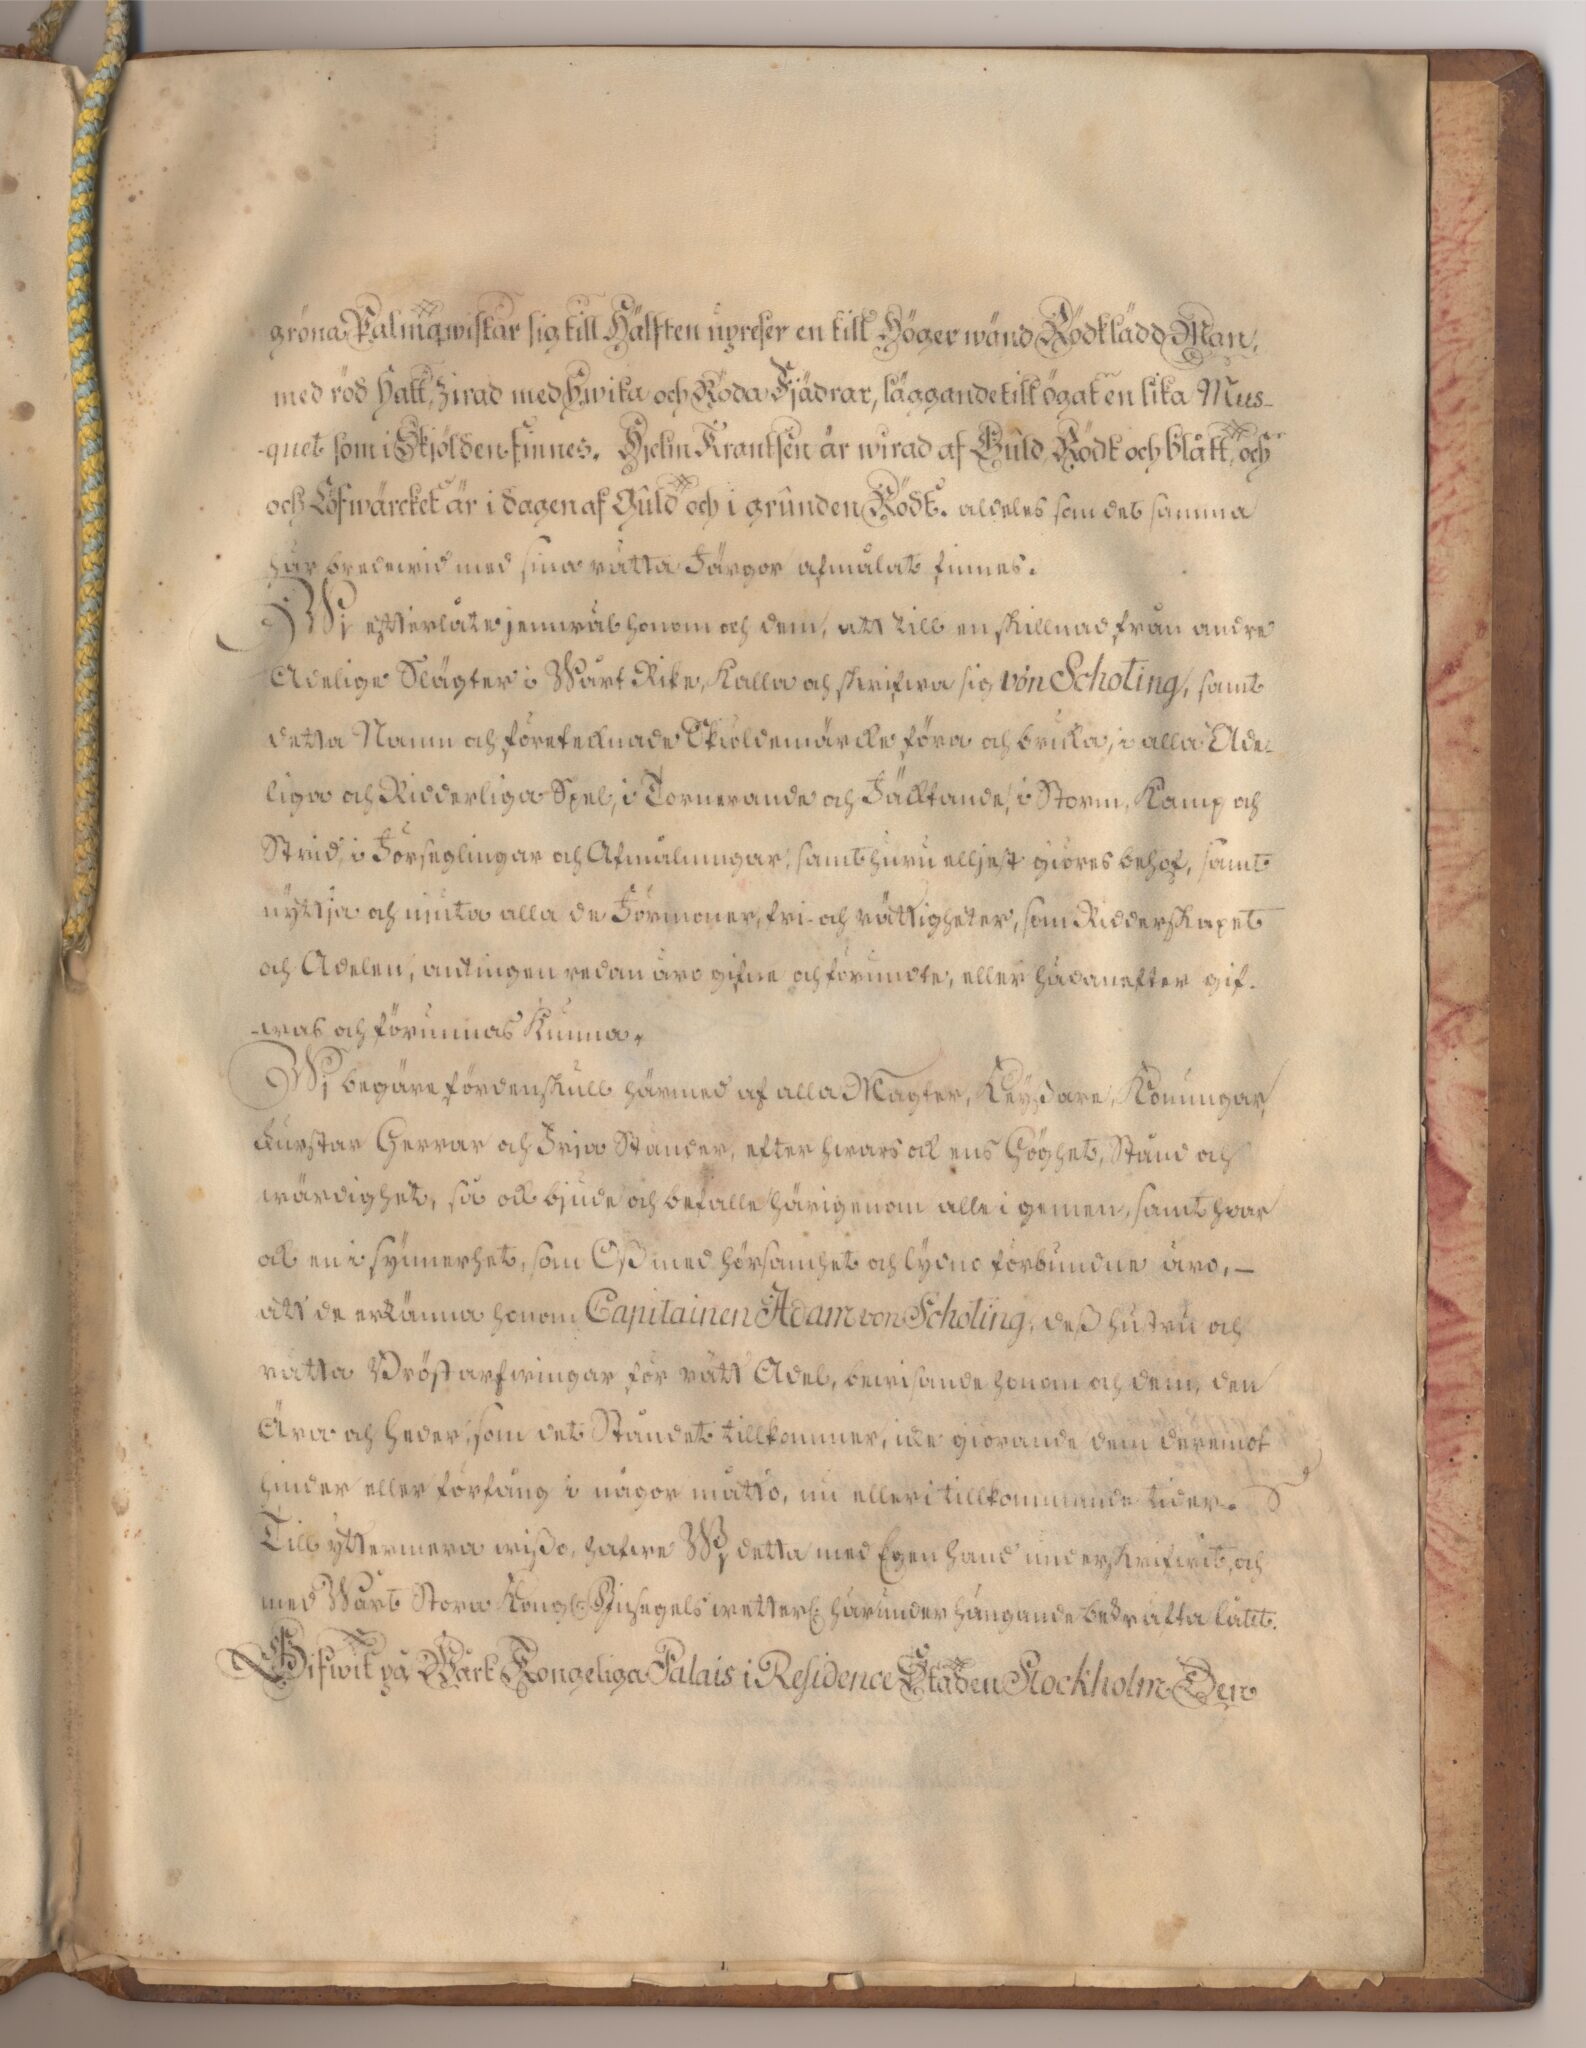 gröna Palmqwistar sig till Hälften upreser en till Höger wänd Rödklädd Man,
med röd Hatt, zirad med Hwita och Röda Fjädrar, läggande till ögat en lika Mus-
-quet som i Skjölden finnes. Hjelm Krantsen är wirad af Guld, Rödt och blått, och
och Löfwärcket är i dagen af Guld och i grunden Rödt. aldeles som det samma
här bredewid med sina rätta Färgor afmålat finnes.
Wj efterlåte jemwäl honom och dem, att till en skillnad från andre
Adelige Slägter i Wårt Rike, Kalla och skrifwa sig von Schoting, samt
detta Namn och företecknade Skiöldemärcke föra och bruka, i alla Ade-
liga och Ridderliga Spel, i Tornerande och Fäcktande, i Storm, Kamp och
Strid, i Förseglingar och Afmålningar, samt huru elljest giöres behof, samt
nyttja och niuta alla de Förmoner, fri- och rättigheter, som Ridderskapet
och Adelen, antingen redan äro gifne och förundte, eller hädanefter gif-
-was och förunnas Kunna.
Wj begäre fördenskull härmed af alla Magter, Keysare, Konungar,
Furstar Herrar och Fria Ständer, efter hwars och ens Höghet, Stånd och
wärdighet, så ock bjude och befalle härigenom alle i gemen, samt hwar
och en i synnerhet, som Oß med hörsamhet och lydno förbundne äro,
att de erkänna honom Capitainen Adam von Schoting, deß hustru och
rätta Bröstarfwingar för rätt Adel, bewisande honom och dem, den
Ära och heder, som det Ståndet tillkommer, icke giörande dem deremot
hinder eller förfång i någor måtto, nu eller i tillkommande tider.
Till yttermera wißo, hafwe Wj detta med Egen hand underskrifwit, och
med Wårt Stora Kongl. Insegels wetterl. härunder hängande bekräfta låtit.
Gifwit på Wårt Kongeliga Palais i Residence Staden Stockholm Den